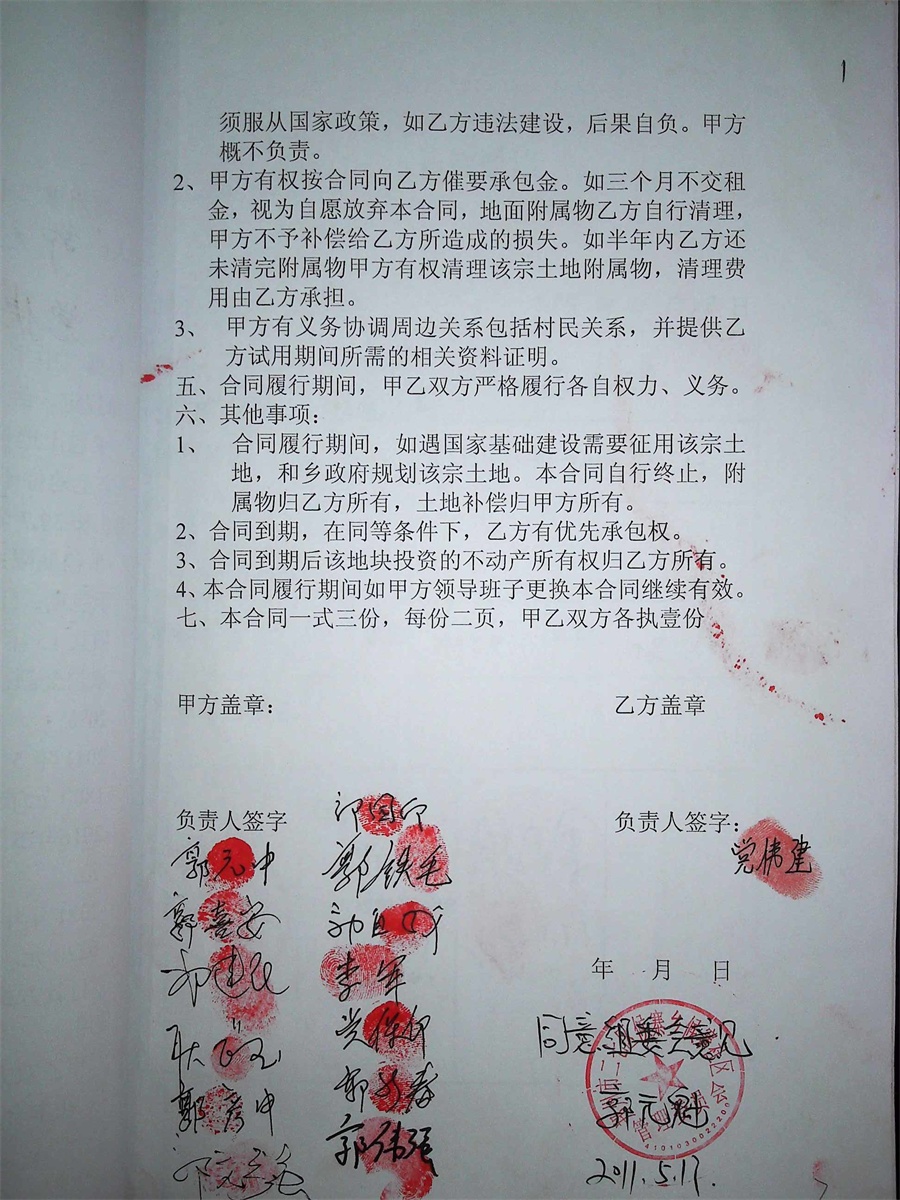 1
须服从国家政策，如乙方违法建设，后果自负。甲方
概不负责。
2、甲方有权按合同向乙方催要承包金。如三个月不交租
金，视为自愿放弃本合同，地面附属物乙方自行清理，
甲方不予补偿给乙方所造成的损失。如半年内乙方还
未清完附属物甲方有权清理该宗土地附属物，清理费
用由乙方承担。
3、 甲方有义务协调周边关系包括村民关系，并提供乙
方试用期间所需的相关资料证明。
五、合同履行期间，甲乙双方严格履行各自权力、义务。
六、其他事项：
1、 合同履行期间，如遇国家基础建设需要征用该宗土
地，和乡政府规划该宗土地。本合同自行终止，附
属物归乙方所有，土地补偿归甲方所有。
2、合同到期，在同等条件下，乙方有优先承包权。
3、合同到期后该地块投资的不动产所有权归乙方所有。
4、本合同履行期间如甲方领导班子更换本合同继续有效。
七、本合同一式三份，每份二页，甲乙双方各执壹份
甲方盖章： 乙方盖章
负责人签字 负责人签字：
郭元中 郭铁毛 党伟建
郭喜安
李军
郭彦中
郭伟强
年 月 日
同意组委会意见
郭元魁
4101030022200
2011.5.17.